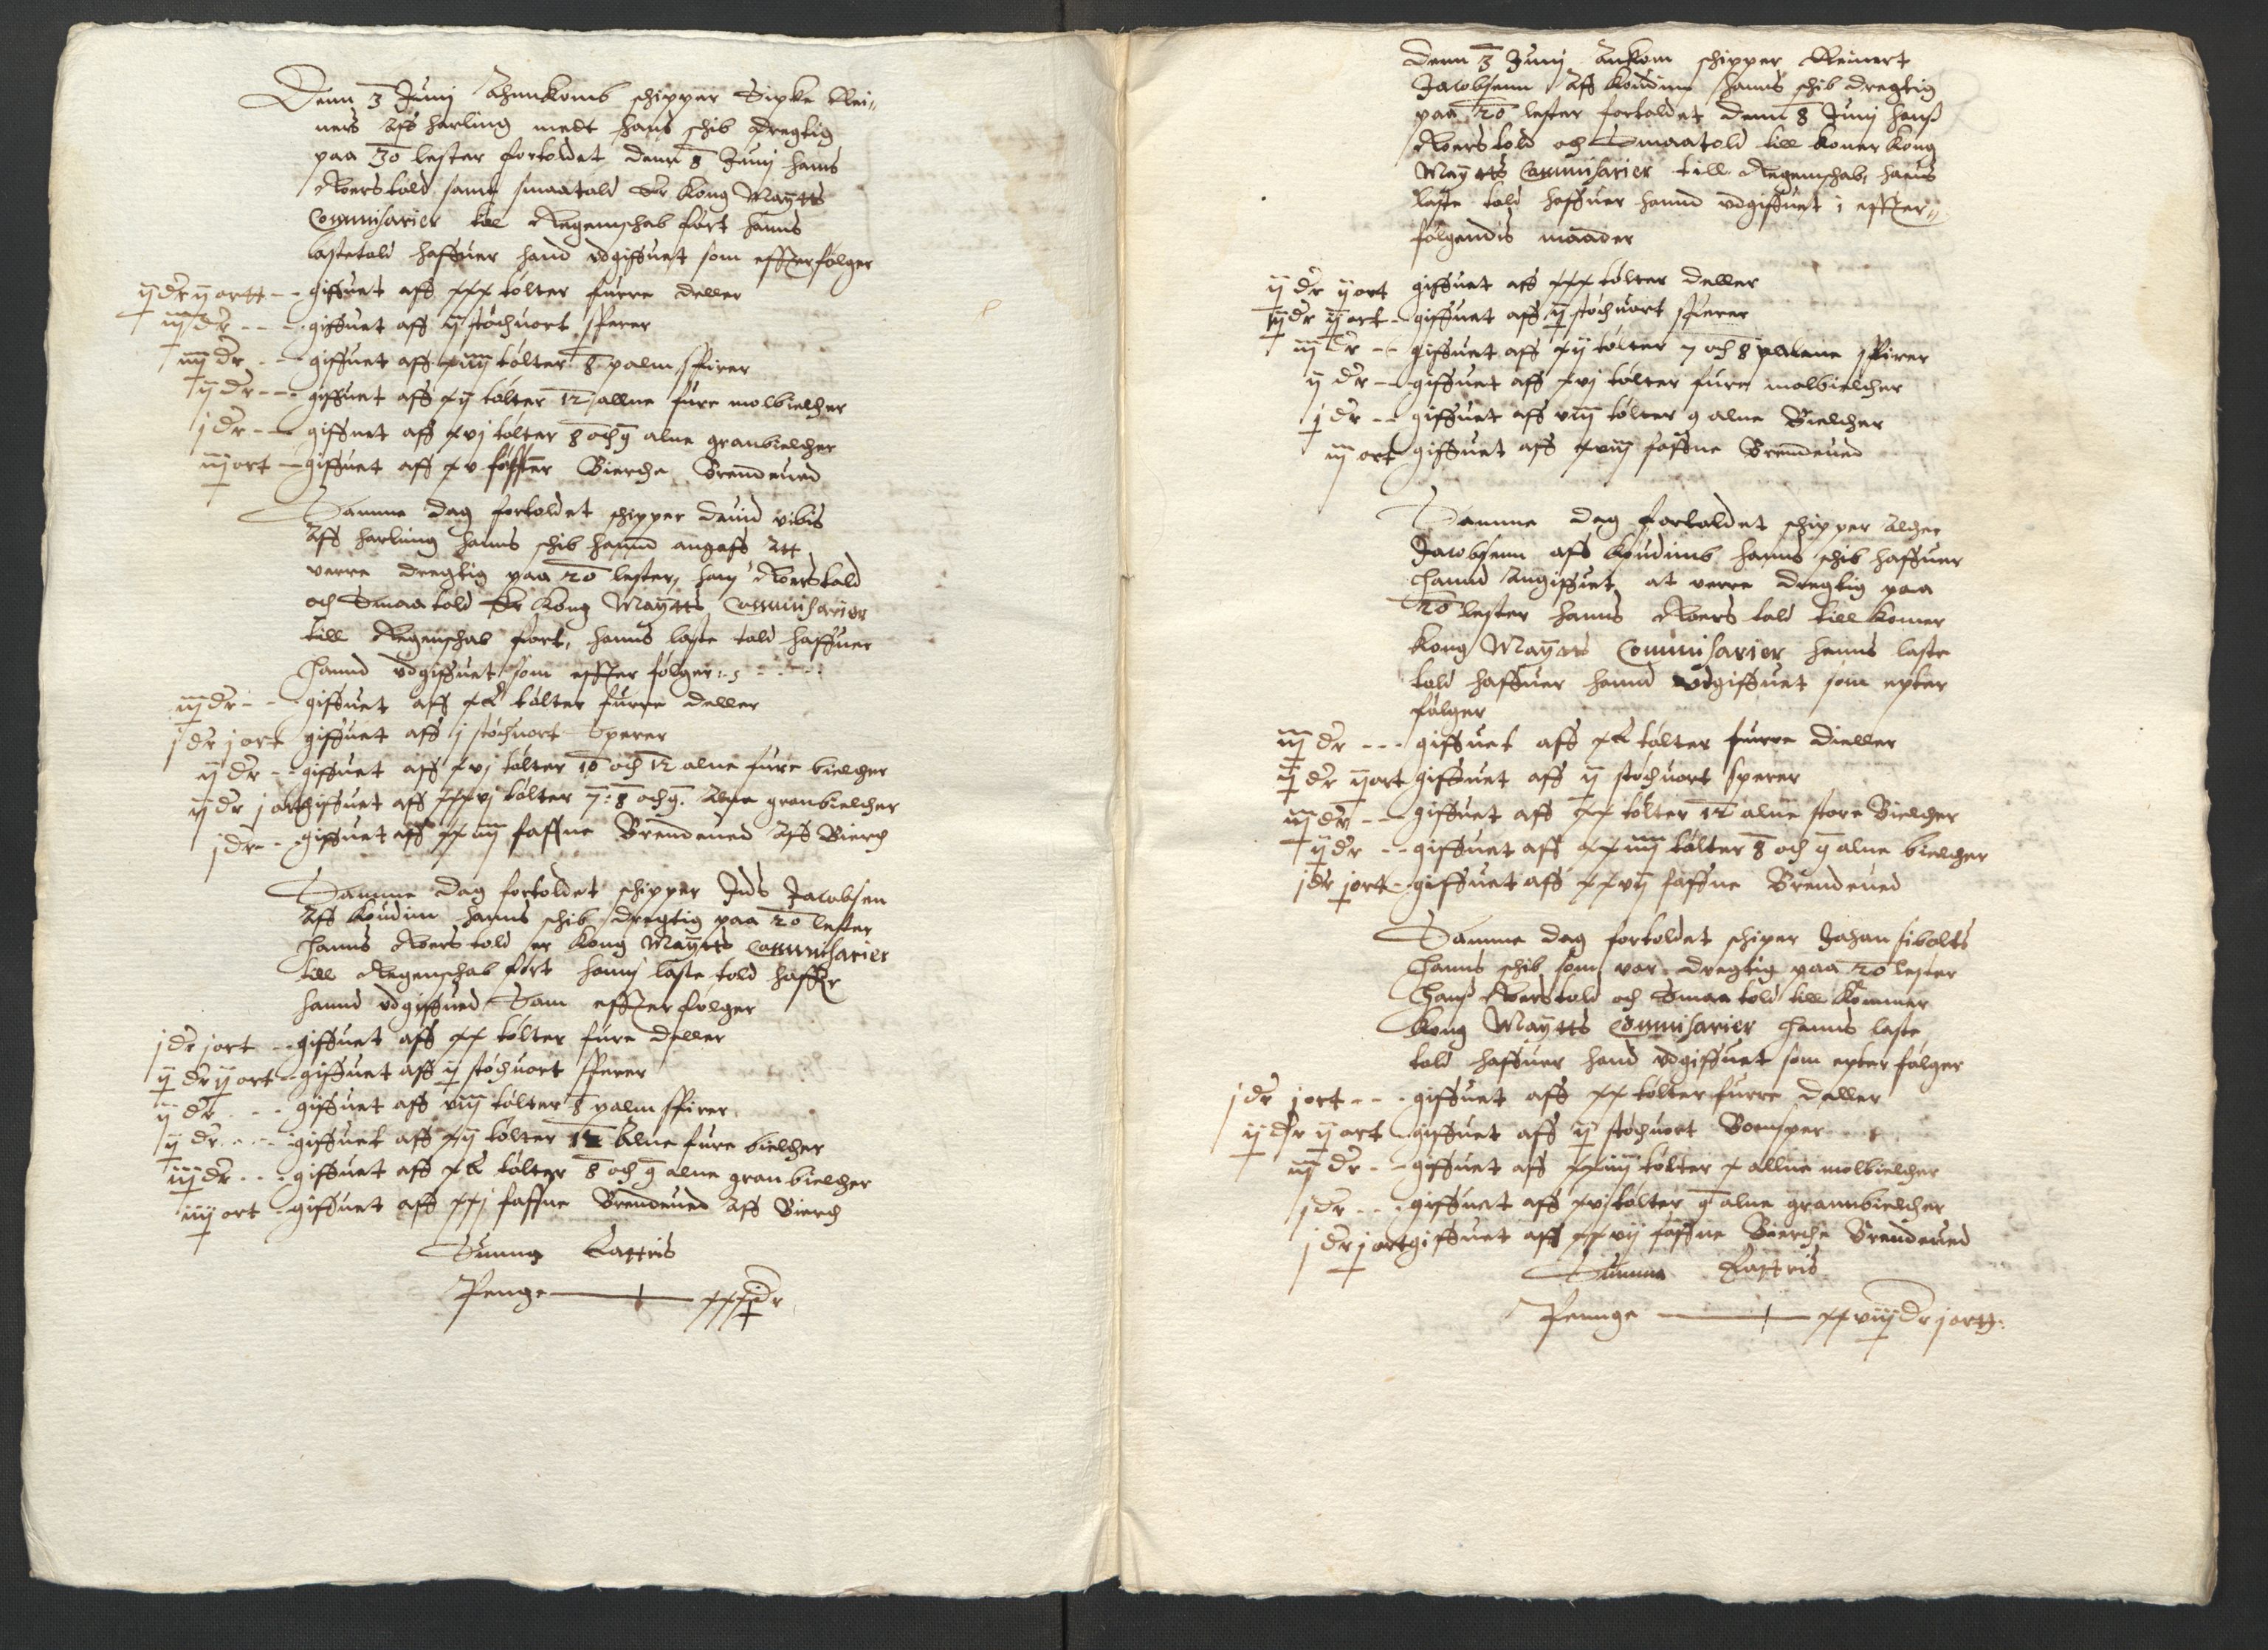 Denn 3 Junij Ahnnkomb schipper Sipke Rei„
ners Aff harling medt hans schib dregtig
paa 30 lester fortoldet denn 8 Junij hans
Roerstold samt smaatold Er Kong Maÿtts
Commisarier till Regennschab fört hanns
lastetold haffuer hand vdgiffuet som effterfølger
ij dr ij ortt - - giffuet aff xxx tölter furre deller
iij dr - - - giffuet aff ij stochuort sperer
iiij dr - - - giffuet aff xiiij tölter 8 palm spirer
ij dr - - - giffuet aff xij tölter 12 allne fure molbielcher
j dr - - - giffuet aff xvj tölter 8 och 9 alne granbielcher
iij ort - giffuet aff xv faffner Bierche Brendeued
Samme dag fortoldet schipper dauid vibis
Aff harling hanns schib hannd angaff Att
verre dregtig paa 20 lester, hans Roerstold
och Smaatold Er Kong Maÿtts Commisarier
till Regenschab fört, hanns laste told haffuer
hannd vdgiffuet som effter følger
iij dr - - giffuet aff xl tölter furre deller
j dr j ort giffuet aff j stochuort Sperer
ij dr - - giffuet aff xvj tölter 10 och 12 alne fure bielcher
ij dr j ort giffuet aff xxxvj tölter 7: 8 och 9. Alne granbielcher
j dr - - giffuet aff xxiiij faffne Brendeued Aff Bierch
Samme dag fortoldet schipper Jids Jacobsen
Aff Koudim hanns schib dregtig paa 20 lester
hanns Roerstold er Kong Maÿtts Commisarier
till Regenschab fört hans laste told haffr
hannd vdgiffued Som effterfølger
j dr j ort - - giffuet aff xx tölter fure deller
ij dr ij ort - - giffuet aff ij stochuort sperer
ij dr - - - giffuet aff viij tölter 8 palm spirer
ij dr - - - giffuet aff xij tölter 12 alne fure bielcher
iij dr - - - giffuet aff xl tölter 8 och 9 alne granbielcher
iiij ort - - giffuet aff xxj faffne Brendeued Aff Bierch
Summa Lattris
Penge xxxj dr
Denn 3 Junij Ankom schipper Reinert
Jacobsenn Aff Koudum hanns schib dregtig
paa 20 lester fortoldet denn 8 Junij hanß
Roerstold och Smaatold till komer Kong
Maÿtts Commisarier till Regennschab, hanns
laste told haffuer hannd vdgiffuet i effter„
følgendis maader
ij dr ij ort giffuet aff xxx tölter deller
ij dr ij ort - giffuet aff ij stochuort sperer
iij dr - - giffuet aff xij tölter 7 och 8 palme spirer
ij dr - - giffuet aff xvj tölter fure molbielcher
j dr - - giffuet aff viij tölter 9 alne Bielcher
iij ort giffuet aff xviij faffne Brendeued
Samme dag fortoldet schipper Alcher
Jacobsenn aff Koudimb hanns schib haffuer
hannd Angiffuet at verre dregtig paa
20 lester hanns Roers told till komer
Kong Maÿtts Commisarier hanns laste
told haffuer hannd vdgiffuet som epter
følger
iij dr - - - giffuet aff xl tölter furre dieller
ij dr ij ort giffuet aff ij stochuort sperer
iij dr - - giffuet aff xx tölter 12 alne store Bielcher
ij dr - - giffuet aff xxiiij tölter 8 och 9 alne bielcher
j dr j ort - giffuet aff xxvij faffne Brendeued
Samme dag fortoldet schiper Johan sibolts
hanns schib som var dregtig paa 20 lester
hanß Roerstold och Smaa told till kommer
Kong Maÿtts Commisarier hanns laste
told haffuer hand vdgiffuet som epter følger
j dr j ort - - - giffuet aff xx tölter furre deller
ij dr ij ort - giffuet aff ij stochuort Bomsper
iij dr - - giffuet aff xxiiij tölter x allne molbielcher
j dr - - - giffuet aff xvj tölter 9 alne grannbielcher
j dr j ort giffuet aff xxvij faffne Bierche Brendeued
Summa Lattris
Pennge xxviij dr j ortt